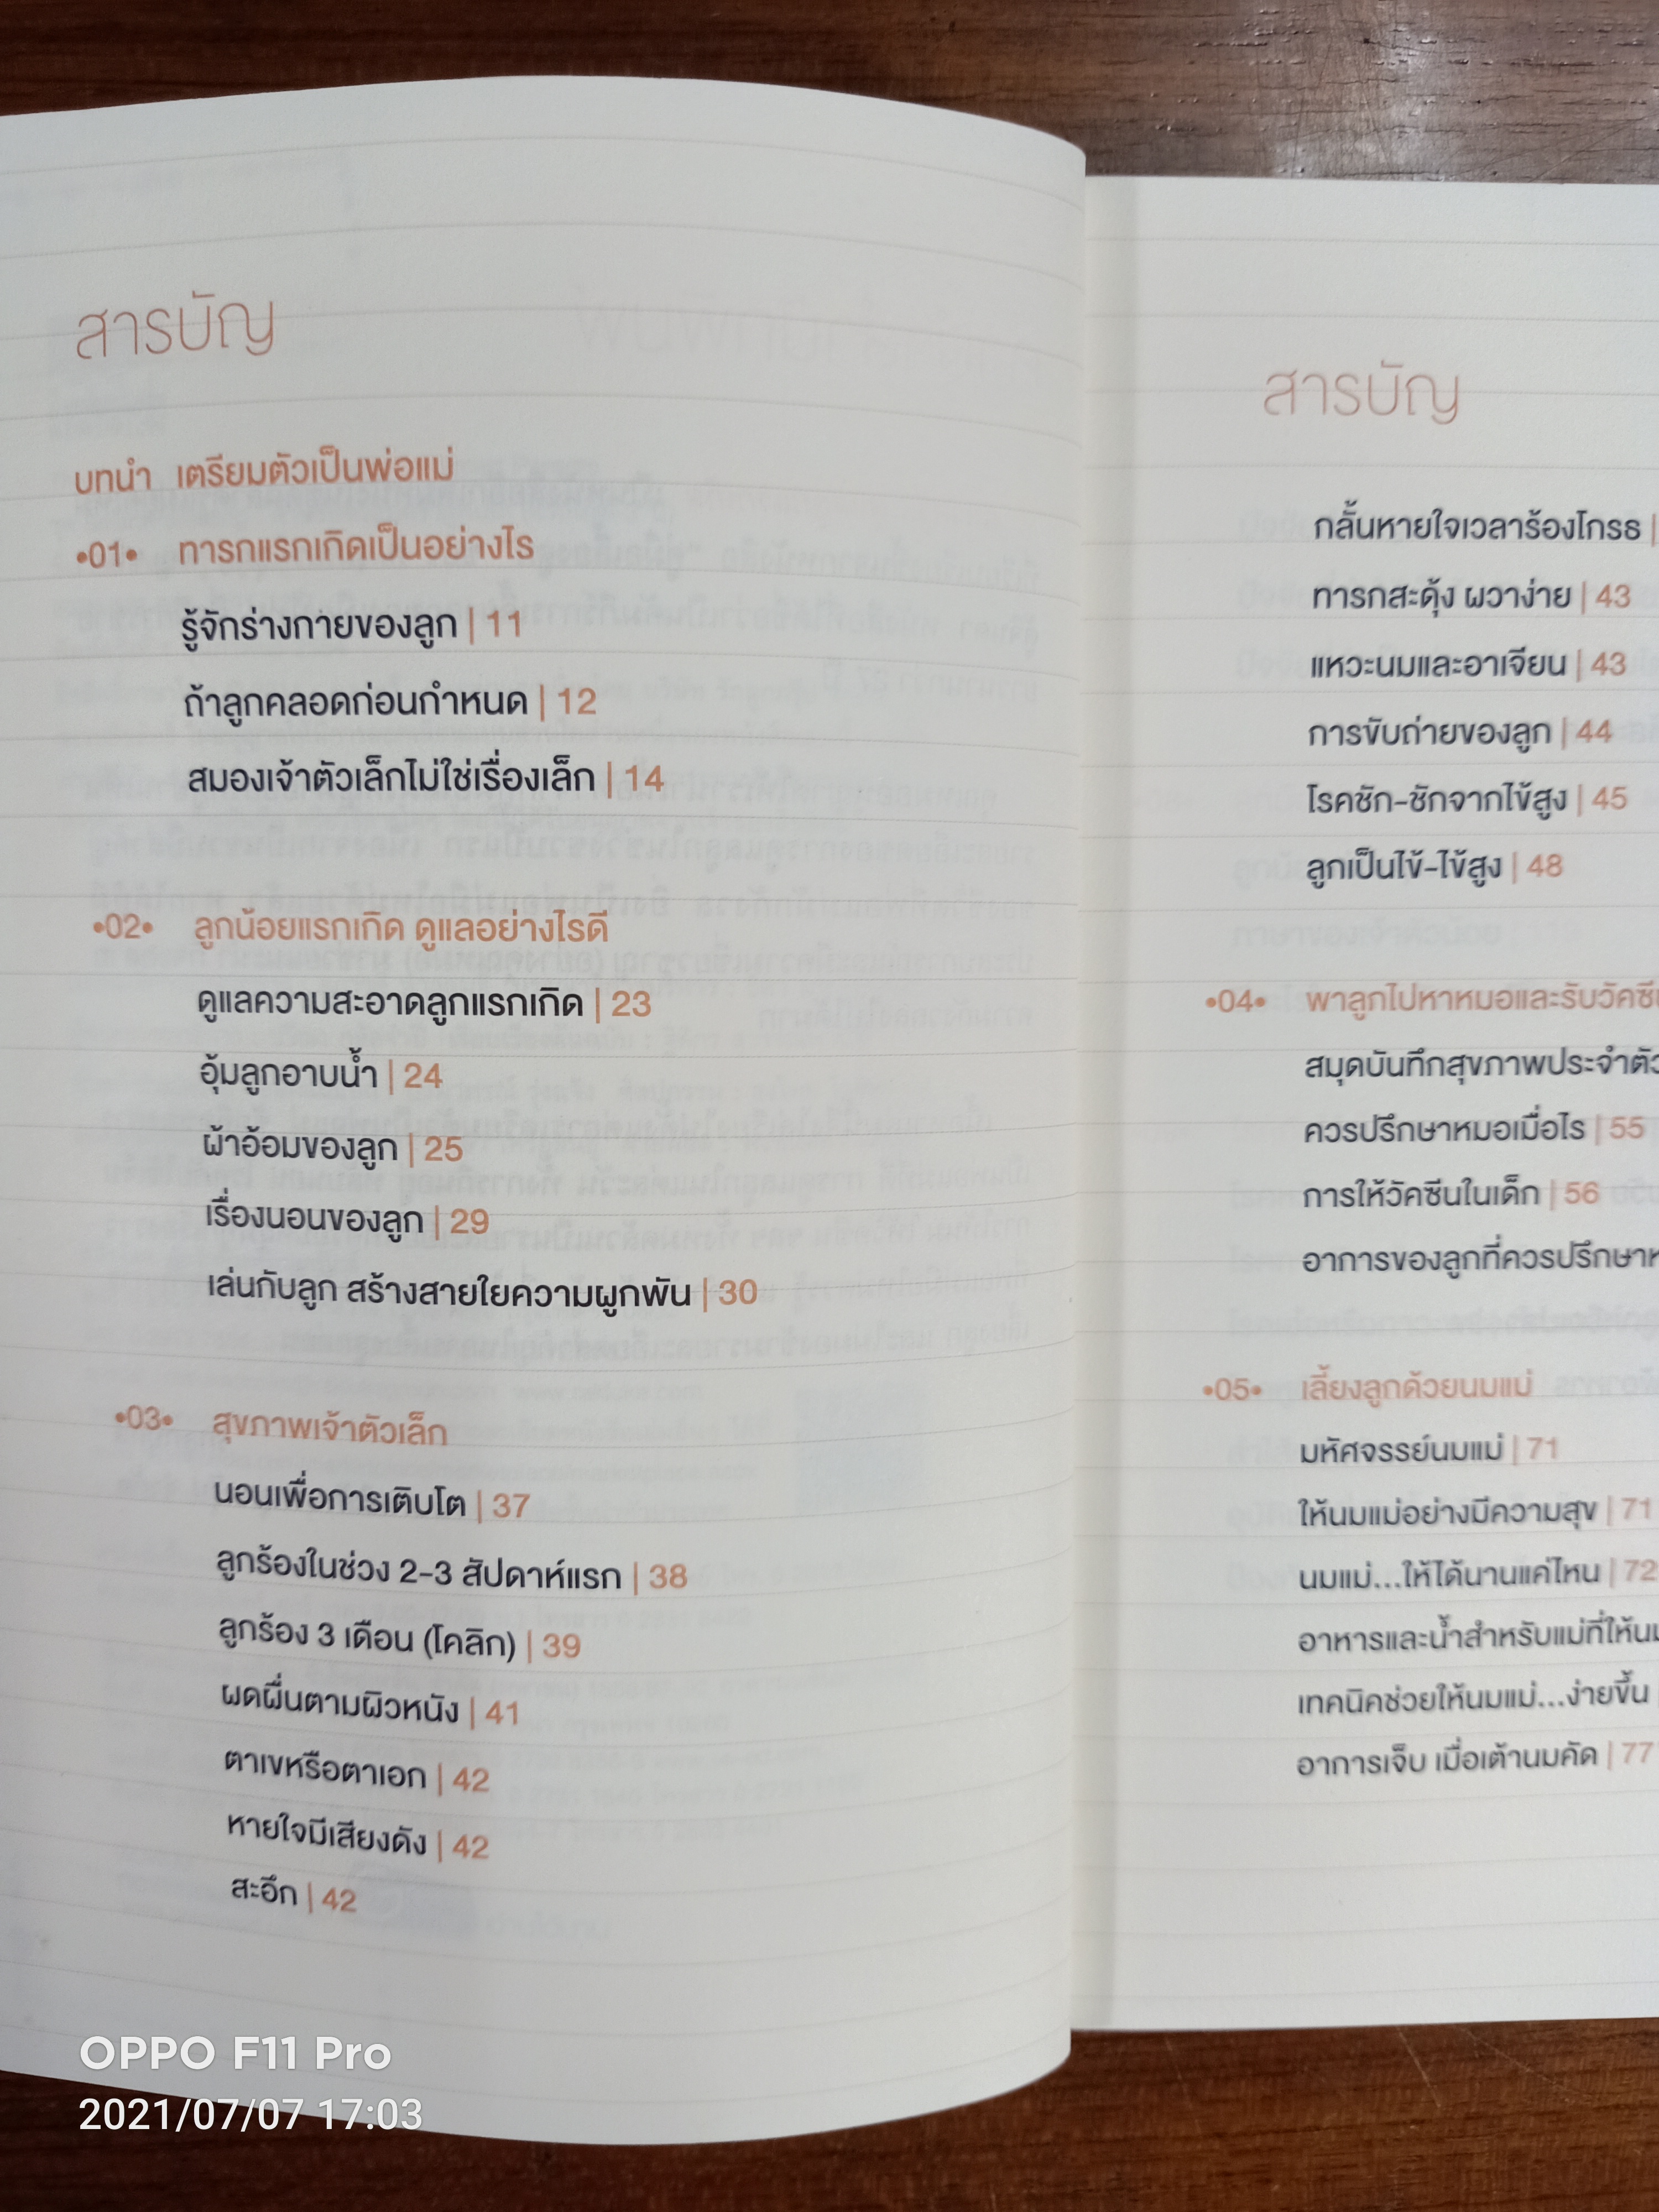 สารบัญ
บทนำ เตรียมตัวเป็นพ่อแม่
•01• ทารกแรกเกิดเป็นอย่างไร
รู้จักร่างกายของลูก | 11
ถ้าลูกคลอดก่อนกำหนด | 12
สมองเจ้าตัวเล็กไม่ใช่เรื่องเล็ก | 14
•02• ลูกน้อยแรกเกิด ดูแลอย่างไรดี
ดูแลความสะอาดลูกแรกเกิด | 23
อุ้มลูกอาบน้ำ | 24
ผ้าอ้อมของลูก | 25
เรื่องนอนของลูก | 29
เล่นกับลูก สร้างสายใยความผูกพัน | 30
•03• สุขภาพเจ้าตัวเล็ก
นอนเพื่อการเติบโต | 37
ลูกร้องในช่วง 2-3 สัปดาห์แรก | 38
ลูกร้อง 3 เดือน (โคลิก) | 39
ผดผื่นตามผิวหนัง | 41
ตาเขหรือตาเอก | 42
หายใจมีเสียงดัง | 42
สะอึก | 42
สารบัญ
กลั้นหายใจเวลาร้องโกรธ |
ทารกสะดุ้ง ผวาง่าย | 43
แหวะนมและอาเจียน | 43
การขับถ่ายของลูก | 44
โรคชัก-ชักจากไข้สูง | 45
ลูกเป็นไข้-ไข้สูง | 48
•04• พาลูกไปหาหมอและรับวัคซี
สมุดบันทึกสุขภาพประจำตัว
ควรปรึกษาหมอเมื่อไร | 55
การให้วัคซีนในเด็ก | 56
อาการของลูกที่ควรปรึกษาห
•05• เลี้ยงลูกด้วยนมแม่
มหัศจรรย์นมแม่ | 71
ให้นมแม่อย่างมีความสุข | 71
นมแม่...ให้ได้นานแค่ไหน | 72
อาหารและน้ำสำหรับแม่ที่ให้นม
เทคนิคช่วยให้นมแม่...ง่ายขึ้น
อาการเจ็บ เมื่อเต้านมคัด | 77
OPPO F11 Pro
2021/07/07 17:03